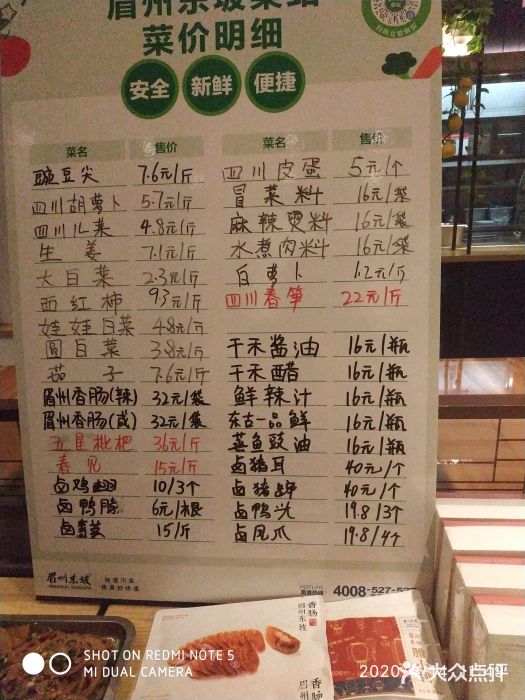 眉州东坡菜站
菜价明细
安全 新鲜 便捷
菜名 售价
豌豆尖 7.6元/斤
四川胡萝卜 5.7元/斤
四川儿菜 4.8元/斤
生姜 7.1元/斤
大白菜 2.3元/斤
西红柿 9.3元/斤
娃娃白菜 4.8元/斤
圆白菜 3.8元/斤
茄子 7.6元/斤
眉州香肠(辣) 32元/袋
眉州香肠(咸) 32元/袋
五星枇杷 36元/斤
春见 15元/斤
卤鸡翅 10/3个
卤鸭腿 6元/根
卤素菜 15/斤
菜名 售价
四川皮蛋 5元/个
冒菜料 16元/袋
麻辣烫料 16元/袋
水煮肉料 16元/袋
白萝卜 1.2元/斤
四川春笋 22元/斤
千禾酱油 16元/瓶
千禾醋 16元/瓶
鲜辣汁 16元/瓶
东古一品鲜 16元/瓶
蒸鱼豉油 16元/瓶
卤猪耳 40元/个
卤猪蹄 40元/个
卤鸭头 19.8/3个
卤凤爪 19.8/4个
眉州东坡
HOTLINE
4008-527-52
香肠
眉州东坡
香肠
眉州
SHOT ON REDMI NOTE 5
MI DUAL CAMERA
2020
大众点评